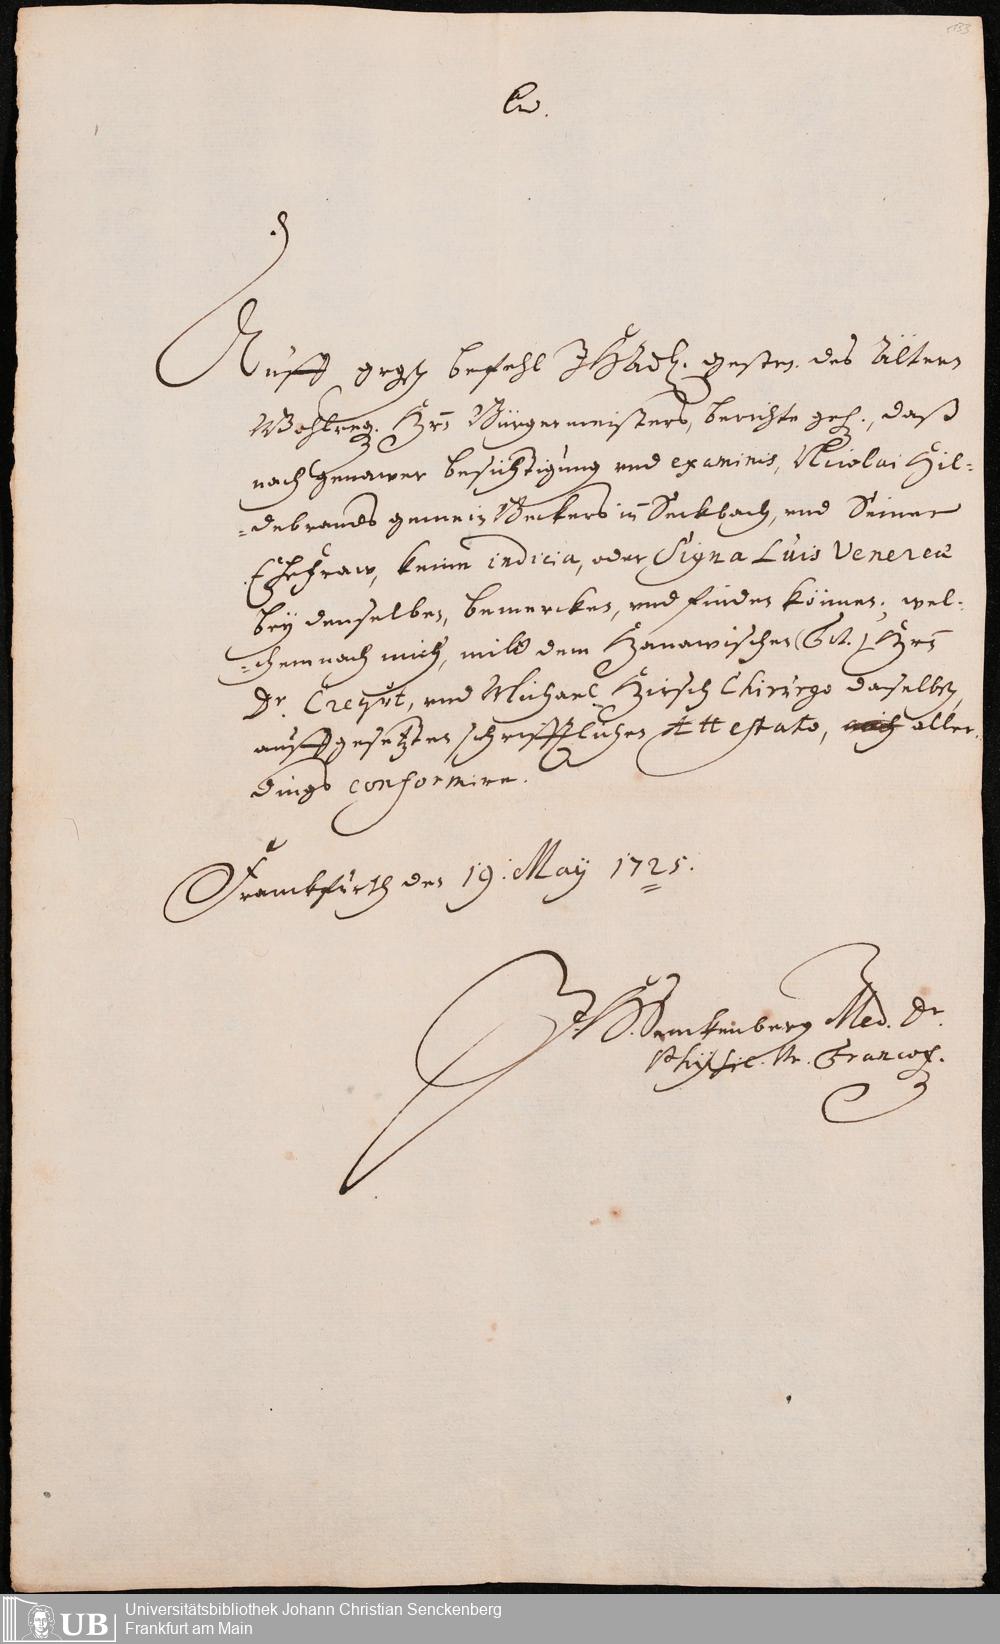 133
Auff grgst befehl IHHadl. gestr. des Ältern
Wohlreg. Hrn Bürgermeisters, berichte geh., daß
nach genawer besichtigung und examinis, Nicolai Hil=
=debrands gemein Beckers in Seckbach, und Seiner
Ehefraw, keine indicia, oder Signa Luis Venereæ
bey denselben, bemercken, und finden können; wel=
=chemnach mich, mitt dem Hanawischen (Tit.) Hrn
Dr. Creqüt, und Michael Hirsch Chirurgo daselbst,
auffgesetzten schrifftlichen Attestato, aller=
dings conformire.
Franckfurth den 19. May 1725.
JH. Senckenberg Med. Dr.
Physic. Or. Francof.
Universitätsbibliothek Johann Christian Senckenberg
UB Frankfurt am Main